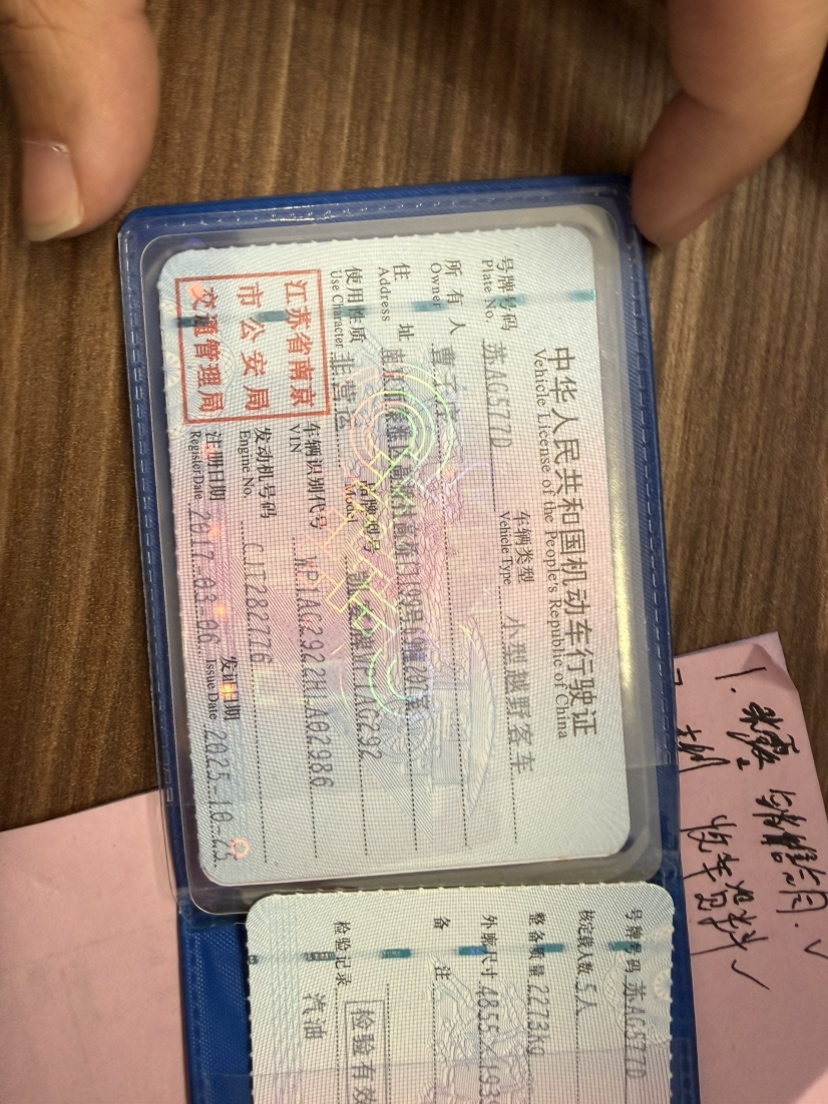 中华人民共和国机动车行驶证
Vehicle License of the People's Republic of China
号牌号码 苏AG577D 车辆类型 小型越野客车
Plate No. Vehicle Type
所有人 曹子
Owner
住址
Address
使用性质 非营运 品牌型号 WP1AG292
Use Character Model
江苏省南京
市公安局
交通管理局
车辆识别代号 WP1AG2922HLA02986
VIN
发动机号码 CJT282776
Engine No.
注册日期 2017-03-06 发证日期 2025-10-25
Register Date Issue Date
号牌号码 苏AG577D
核定载人数 5人
整备质量 2273kg
外廓尺寸 4855
备注
检验记录 检验有效
汽油
1.
销售合同.✓
收车资料✓